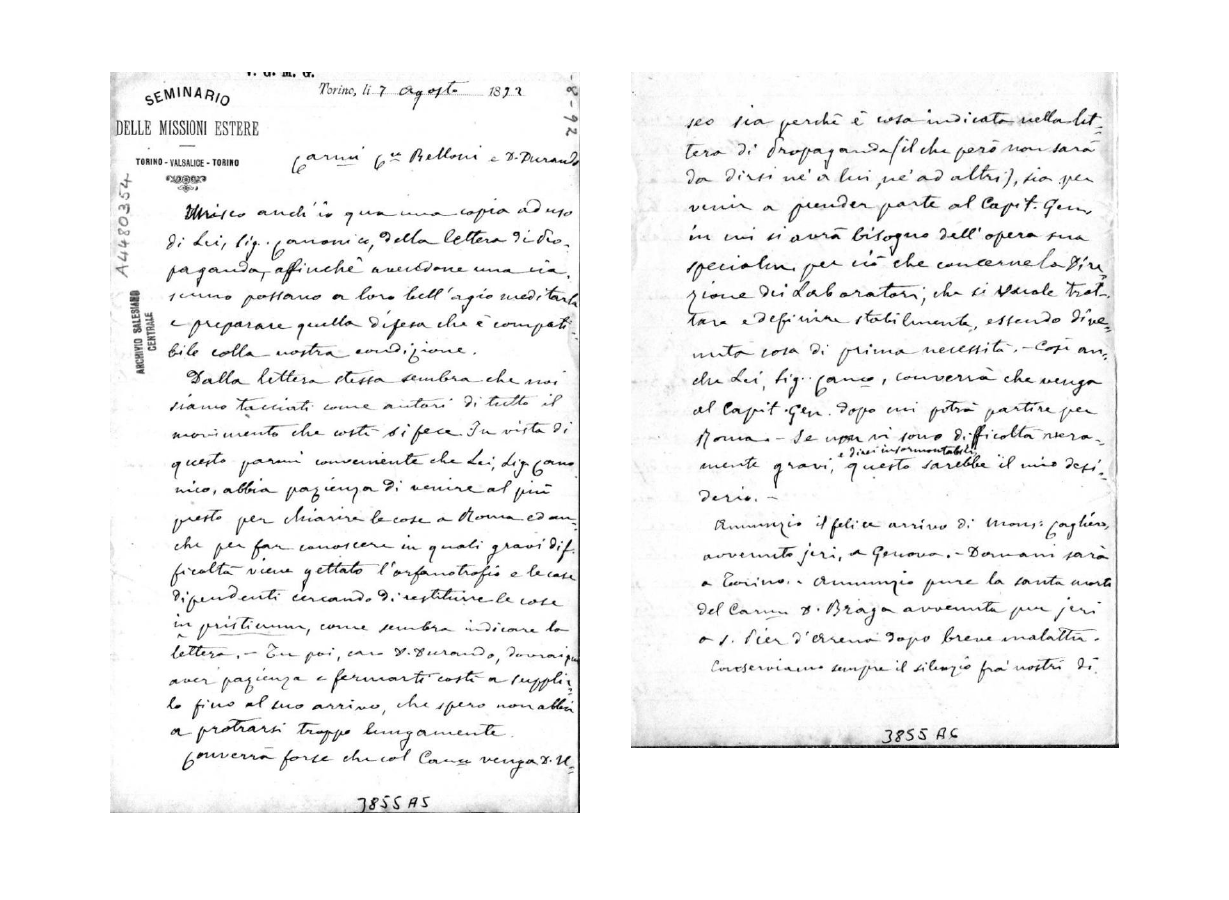 V. G. M. G.
SEMINARIO
DELLE MISSIONI ESTERE
TORINO - VALSALICE - TORINO
Torino, li 7 Agosto 1892
7-8-92
A4480354
ARCHIVIO SALESIANO
CENTRALE
Carmi Cn Belloni e D. Durando
Unisco anch'io qua una copia ad uso
di Lei, Sig. Canonico, della lettera di Pro-
paganda, affinchè avendone una cia-
scuno possano a loro bell'agio meditarla
e preparare quella difesa che è compati-
bile colla nostra condizione.
Dalla lettera stessa sembra che noi
siamo tacciati come autori di tutto il
movimento che costì si fece. In vista di
questo parmi conveniente che Lei, Sig. Cano
nico, abbia pazienza di venire al più
presto per chiarire le cose a Roma ed an-
che per far conoscere in quali gravi dif-
ficoltà viene gettato l'orfanotrofio e le case
dipendenti cercando di restituire le cose
in pristinum, come sembra indicare la
lettera. - Tu poi, caro D. Durando, dovrai
aver pazienza e fermarti costì a supplir
lo fino al suo arrivo, che spero non abbia
a protrarsi troppo lungamente.
Converrà forse che col Canco venga D. U-
3855 A5
seo sia perchè è cosa indicata nella let-
tera di Propaganda (il che però non sarà
da dirsi nè a lui, nè ad altri), sia per
venir a prender parte al Capit. Gen.
in cui si avrà bisogno dell'opera sua
specialm. per ciò che concerne la Dire-
zione dei Laboratori, che si vuole trat-
tare e definire stabilmente, essendo dive-
nuta cosa di prima necessità. - Così an-
che Lei, Sig. Canco, converrà che venga
al Capit. Gen. dopo cui potrà partire per
Roma. - Se non vi sono difficoltà vera-
mente gravi, e direi insormontabili, questo sarebbe il mio desi-
derio. -
Annunzio il felice arrivo di Mons. Cagliero,
avvenuto jeri, a Genova. - Domani sarà
a Torino. - Annunzio pure la santa morte
del Carmo D. Braga avvenuta pur jeri
a S. Pier d'Arena dopo breve malattia.
Conserviamo sempre il silenzio fra' nostri di
3855 A6